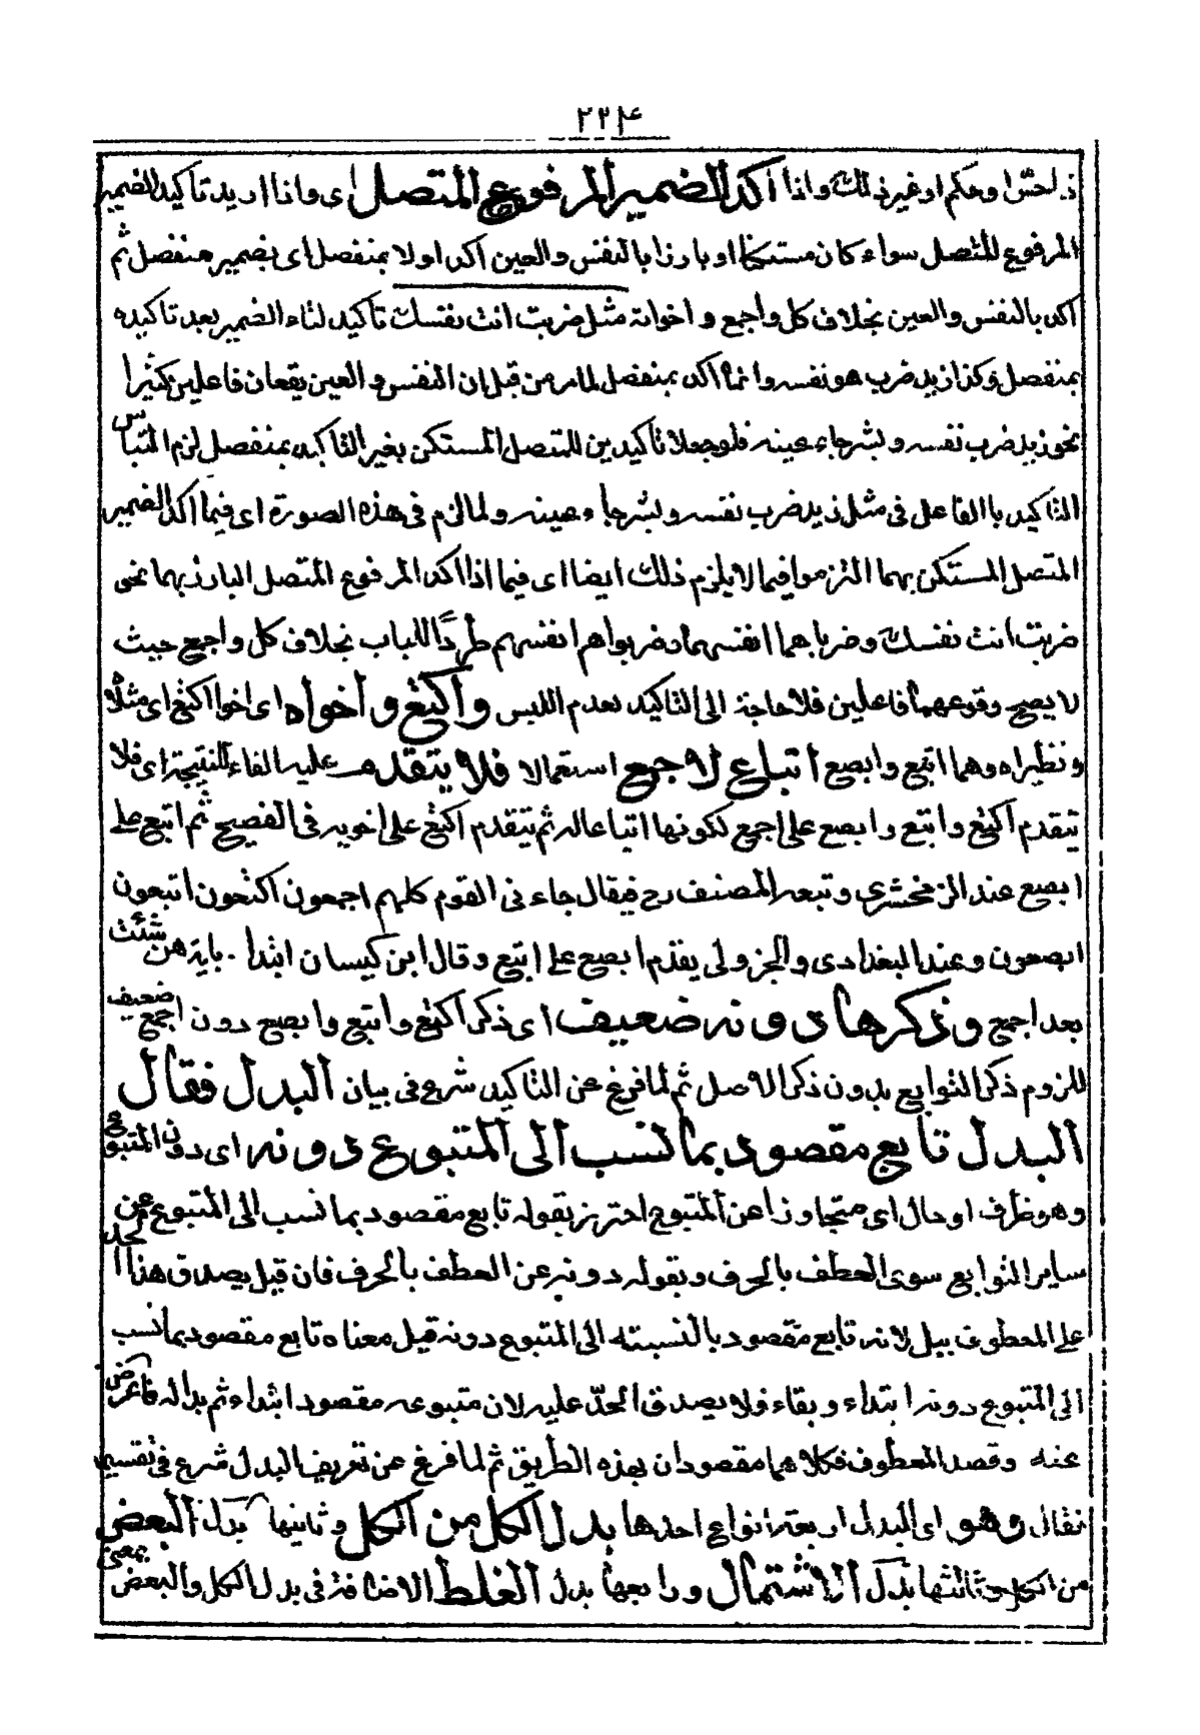 ٢٢٤
ذلك حسّا وحكم او غير ذلك واذا اكد الضمير المرفوع المتصل اى واذا اريد تاكيد الضمير
المرفوع المتصل سواء كان مستكنا او بارزا بالنفس والعين اكد اولا بمنفصل اى بضمير منفصل ثم
اكد بالنفس والعين بخلاف كل واجمع واخواته مثل ضربت انت نفسك تأكيد لتاء الضمير بعد تاكيده
بمنفصل وكذا زيد ضرب هو نفسه وانما اكد بمنفصل لما مر من قبل ان النفس والعين يقعان فاعلين كثيرا
نحو زيد ضرب نفسه وبشر جاء عينه فلو جعلا تاكيدين للمتصل المستكن بغير التاكيد بمنفصل لزم التباس
التاكيد باالفاعل فى مثل زيد ضرب نفسه وبشر جاء عينه ولما لزم فى هذه الصورة اى فيما اكد الضمير
المتصل المستكن بهما التزموا فيما لا يلزم ذلك ايضا اى فيما اذا اكد المرفوع المتصل البارز بهما نحو
ضربت انت نفسك وضرباهما انفسهما وضربوا هم انفسهم طردًا للباب بخلاف كل واجمع حيث
لا يصح وقوعهما فاعلين فلا حاجة الى التاكيد لعدم اللبس واكتع واخواه اى اخوا اكتع اى مثلاه
ونظيراه وهما اتبع وابصع اتباع لاجمع استعمالا فلا يتقدم عليه الفاء للنتيجة اى فلا
يتقدم اكتع وابتع وابصع على اجمع لكونها اتباعا له ثم يتقدم اكتع على اخويه فى الفصيح ثم اتبع على
ابصع عند الزمخشرى وتبعه المصنف رح فيقال جاءنى القوم كلهم اجمعون اكتعون ابتعون
ابصعون وعند البغدادى والجزولى يقدم ابصع على ابتع وقال ابن كيسان ابتدا باية هن شئت
بعد اجمع وذكرها دونه ضعيف اى ذكر اكتع وابتع وابصع دون اجمع ضعيف
للزوم ذكر التوابع بدون ذكر الاصل ثم لما فرغ عن التاكيد شرع فى بيان البدل فقال
البدل تابع مقصود بما نسب الى المتبوع دونه اى دون المتبوع
وهو ظرف او حال اى متجاوزا عن المتبوع احترز بقوله تابع مقصود بما نسب الى المتبوع عن
ساير التوابع سوى العطف بالحرف وبقوله دونه عن العطف بالحرف فان قيل يصدق هذا الحد
على المعطوف ببل لانه تابع مقصود بالنسبته الى المتبوع دونه قيل معناه تابع مقصود بما نسب
الى المتبوع دونه ابتداء وبقاء ولا يصدق الحدّ عليه لان متبوعه مقصود ابتداء ثم بدا له فاعرض
عنه وقصد المعطوف فكلاهما مقصودان بهذه الطريق ثم لما فرغ عن تعريف البدل شرع فى تقسيمه
فقال وهو اى البدل اربعة انواع احدها بدل الكل من الكل وثانيها بدل البعض
من الكل وثالثها بدل الاشتمال ورابعها بدل الغلط الاضافة فى بدل الكل والبعض بمعنى